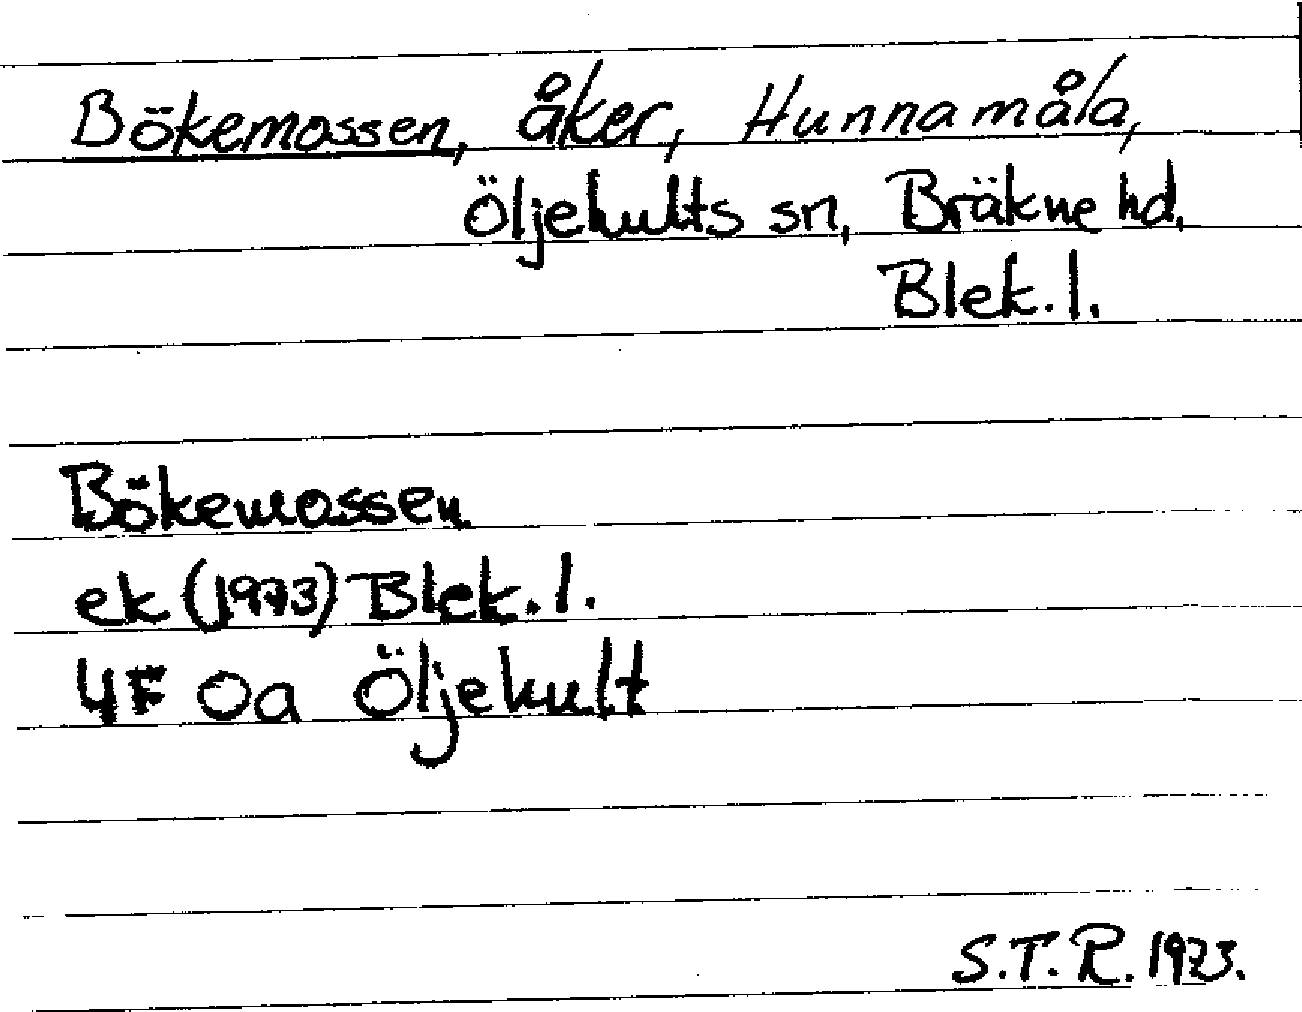 Bökemossen, åker, Hunnamåla,
Öljehults sn, Bräkne hd,
Blek. l.
Bökemossen
ek (1973) Blek. l.
4F 0a Öljehult
S.T.R. 1973.